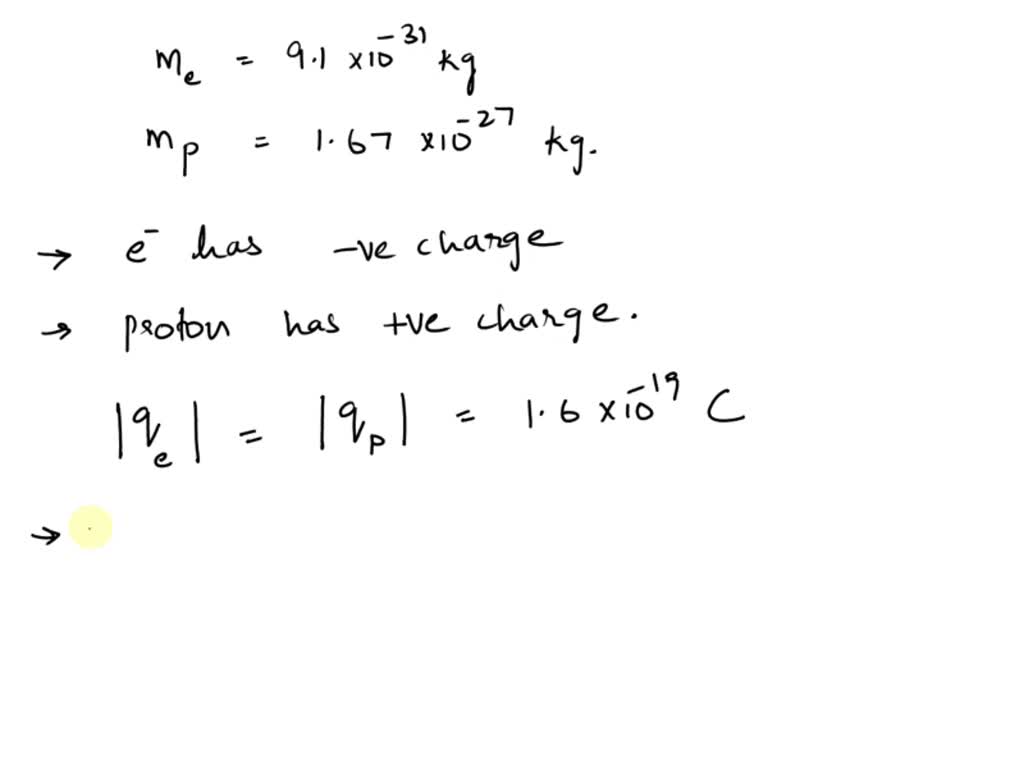 mₑ = 9.1 ×10⁻³¹ kg
mₚ = 1.67 ×10⁻²⁷ kg.
→ e⁻ has -ve charge
→ proton has +ve charge.
|qₑ| = |qₚ| = 1.6 ×10⁻¹⁹ C
→